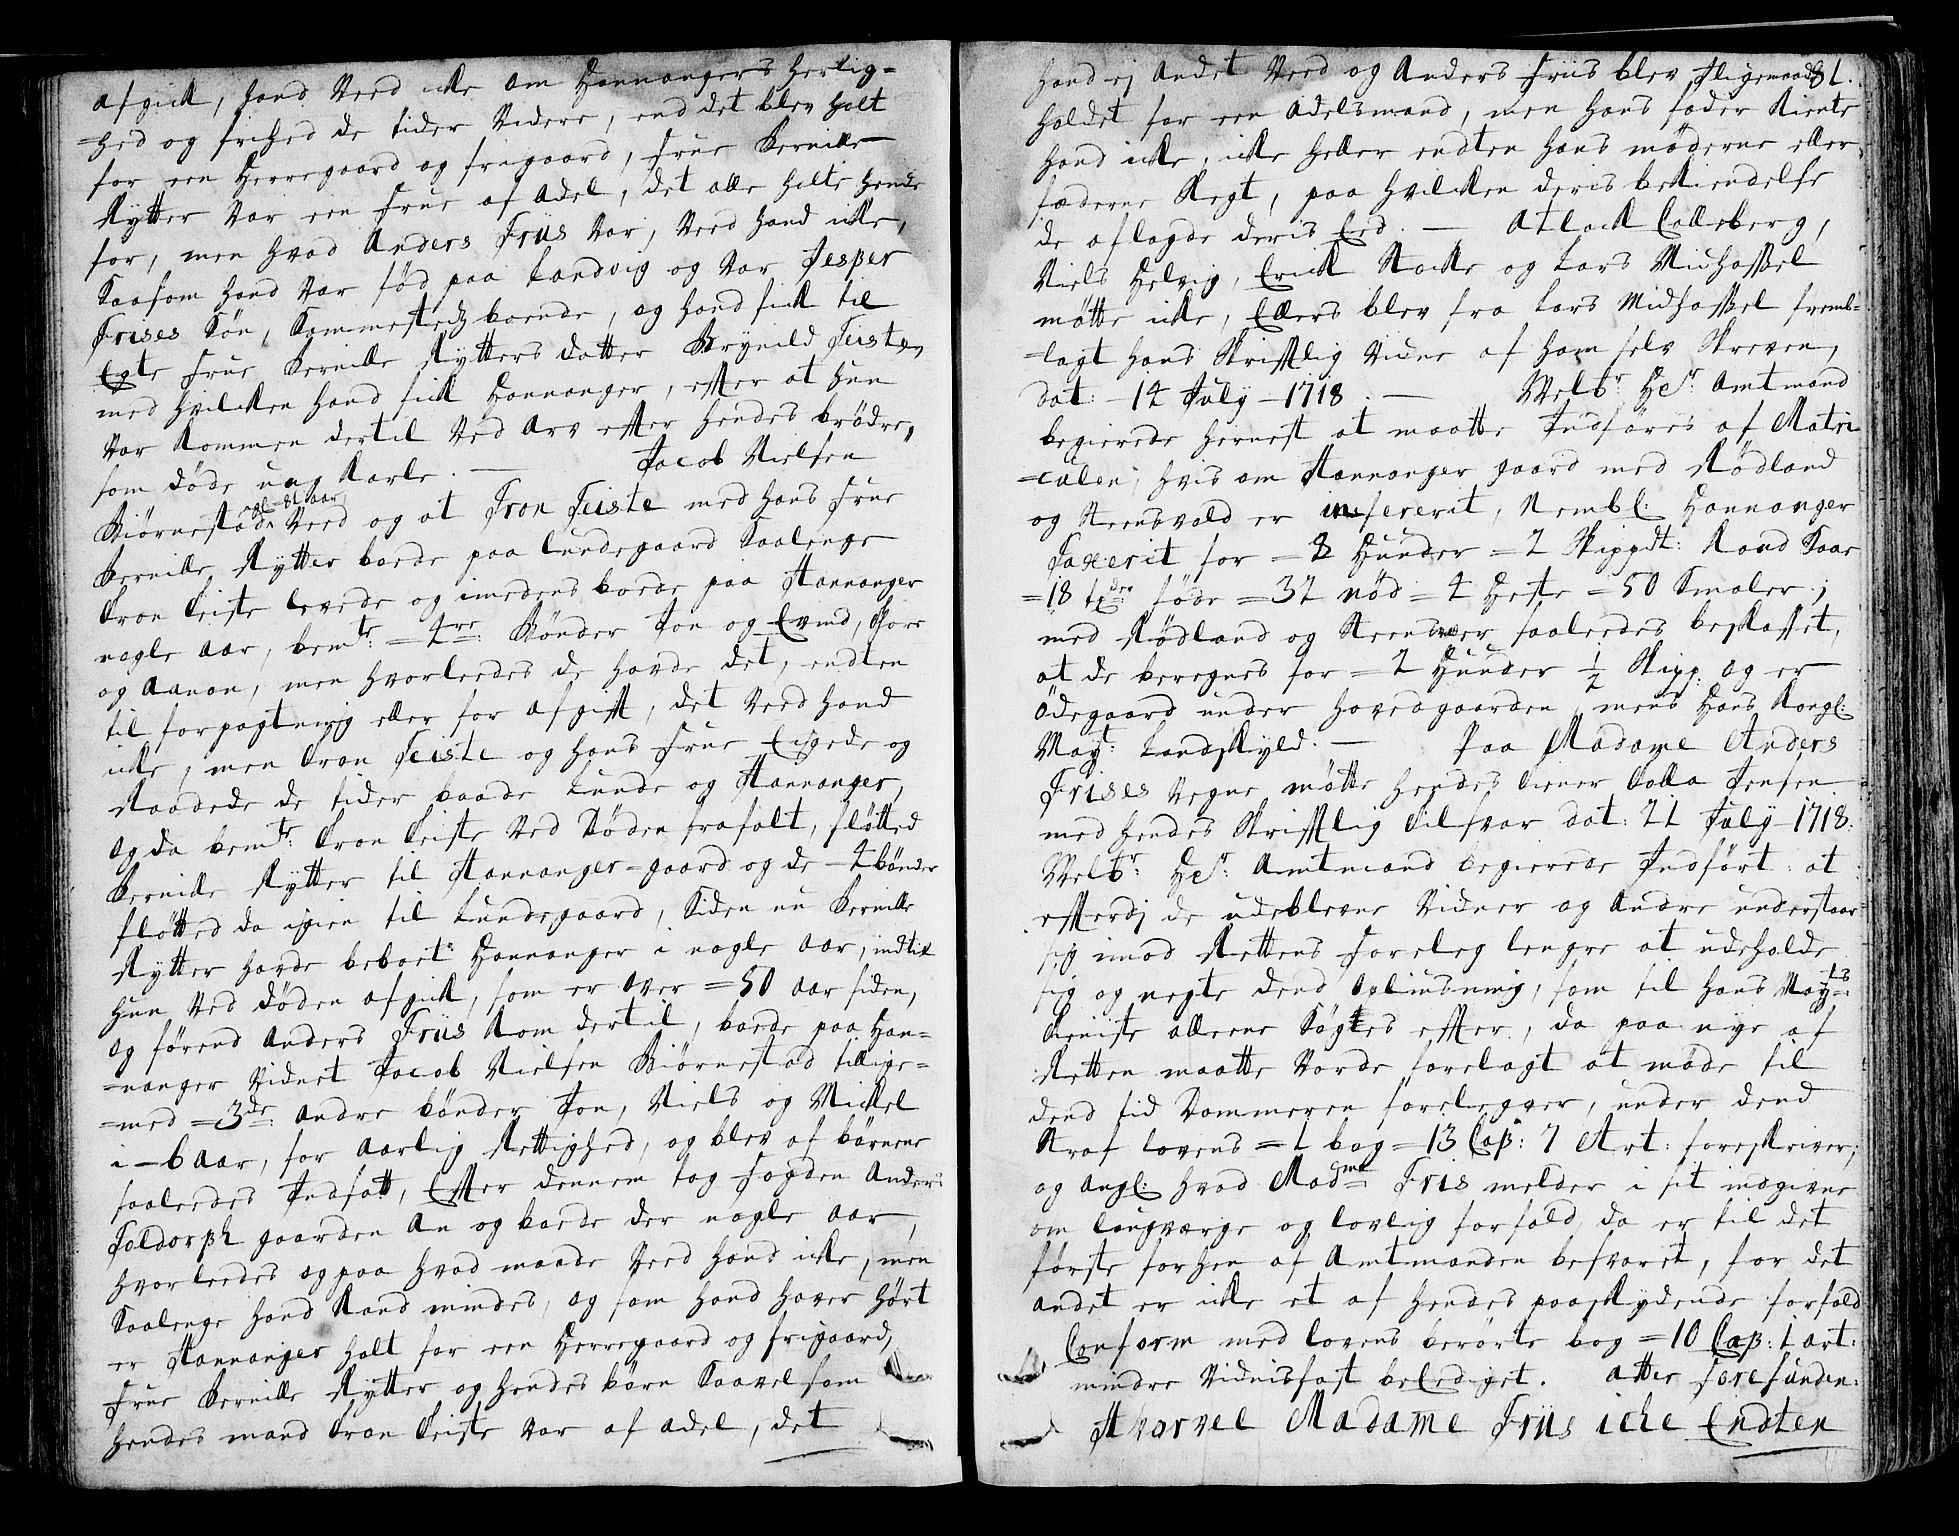 afgick, hand Veed icke om Hannangers herlig=
=hed og frihed de tider Videre, end det blev holt
for een Herregaard og frigaard, frue Pernille
Rytter Var een frue af Adel, det alle holte hende
for, men hvad Anders Friis Var, Veed hand icke,
Saasom hand Var fød paa Landvig og Var Jesper
Frises Søn, Sammestedz boende, og hand fick til
Egte frue Pernille Rytters datter Brynild Feiste,
med hvilcken hand fick Hannanger, efter at hun
Var kommen dertil Ved Arv efter hendes brødre,
som døde ung karle. — Jacob Nielsen
Biørnestad Veed og at Tron Feiste med hans frue
Pernille Rytter boede paa Lundegaard Saalenge
Tron Feiste levede og imedens boede paa Hannanger
nogle aar, bemte: =4re: Bønder Jon og Evind, Tore
og Aanon, men hvorleedes de havde det, endten
til forpagtning eller for afgift, det Veed hand
icke, men Tron Feiste og hans frue Eigede og
Raadede de tider baade Lunde og Hannanger,
og da bemte: Tron Feiste Ved Døden frafalt, fløtted
Pernille Rytter til Hannanger=gaard og de =4 bønder
fløtted da igien til Lundegaard, Siden nu Pernille
Rytter havde beboet Hannanger i nogle aar, indtil
hun Ved Døden afgick, som er over =50 aar siden,
og førend Anders Friis kom dertil, boede paa Han=
=nanger Vidnet Jacob Nielsen Biørnestad tillige=
=med =3de: andre bønder Jon, Niels og Mickel
i =6 aar, for aarlig Rettighed, og blev af børnene
saaleedes Indsatt, Efter dennem tog fogden Anders
Toldorph gaarden an og boede der nogle aar,
hvorleedes og paa hvad maade Veed hand icke, men
Saalenge hand kand mindes, og som hand haver hørt
er Hannanger holt for een Herregaard og frigaard,
frue Pernille Rytter og hendes børn Saavelsom
hendes mand Tron Feiste Var af adel, det
81.
hand ej andet Veed og Anders Friis blev Sligemaade
holdet for een Adelsmand, men hans fader kiente
hand icke, icke heller endten hans møderne eller
fæderne Slegt, paa hvilcken deris bekiendelse
de aflagde deris Eed. — Atlack Colleberg,
Niels Helvig, Erick Stocke og Lars Midhassel
møtte icke, Ellers blev fra Lars Midhassel fremb=
=lagt hans Skriftlig Vidne af ham selv Skreven,
dat: 14 July 1718. — Welbr: Hr: Amtmand
begierede hernest at maatte Indføres af Matri
=culen, hvis om Hannanger gaard med Rødland
og Steensvold er insererit, Nembl: Hannanger
Taxerit for =8 Huuder =2 Skippdt: Kand Saae
=18 tdr føde =32 nød =4 heste =50 Smaler;
med Rødland og Steens saaleedes beskaffet,
at de beregnes for =2 Huuder 1/2 Skipp. og er
Ødegaard under hovedgaarden mens Hans Kongl:
Mayt: Landskyld. — Paa Madame Anders
Frises Vegne møtte hendes tiener Tolla Jensen
med hendes Skriftlig Tilsvar dat: 21 July 1718:
Welbr: Hr: Amtmand begierede Indført: at
efterdj de udeblevne Vidner og andre understaar
sig imod Rettens Foreleg lengre at udeholde
sig og negte dend opliusning, som til hans Mayts:
tieniste alleene Søgtes efter, da paa nye af
Retten maatte Vorde forelagt at møde til
dend tid Dommeren forelegger, under dend
Straf lovens =1 bog =13 Cap: 7 Art: foreskriver;
og angl: hvad Madme Fris melder i sit indgivne
om laugværge og lovlig forfald, da er til det
første forhen af Amtmanden besvaret, for det
andet er icke et af hendes paaskydende forfald
Conform med lovens berørte bog =10 Cap: 1 art:
mindre Vidnisfast beEediget. Atter forefunden:
Hvorvel Madame Friis icke Endten